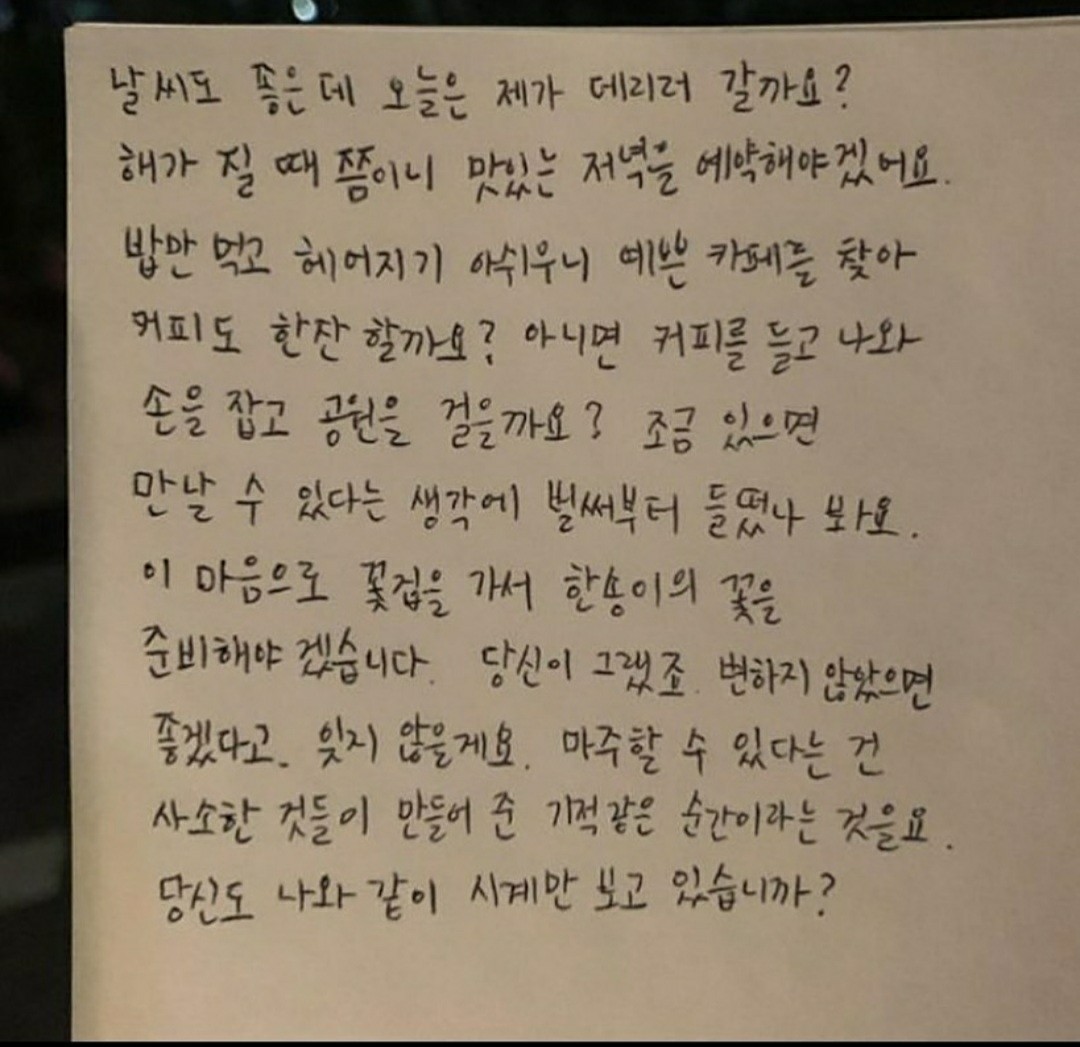 날씨도 좋은데 오늘은 제가 데리러 갈까요?
해가 질 때 쯤이니 맛있는 저녁을 예약해야겠어요.
밥만 먹고 헤어지기 아쉬우니 예쁜 카페를 찾아
커피도 한잔 할까요? 아니면 커피를 들고 나와
손을 잡고 공원을 걸을까요? 조금 있으면
만날 수 있다는 생각에 벌써부터 들떴나 봐요.
이 마음으로 꽃집을 가서 한송이의 꽃을
준비해야 겠습니다. 당신이 그랬죠. 변하지 않았으면
좋겠다고. 잊지 않을게요. 마주할 수 있다는 건
사소한 것들이 만들어 준 기적같은 순간이라는 것을요.
당신도 나와 같이 시계만 보고 있습니까?